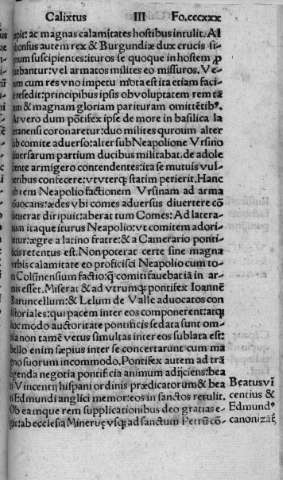 Calixtus III Fo.cccxxx
ac magnas calamitates hostibus intulit. Al
fonsus autem rex & Burgundiæ dux crucis si-
num suscipientes: ituros se quoque in hostem p
abantur: vel armatos milites eo missuros. Ve-
um cum res vno impetu mota est ita etiam faci-
resedit: principibus ipsis obvolutam remtā
am & magnam gloriam parituram omittētibꝰ.
At vero dum pōtifex ipse de more in basilica la
eranensi coronaretur: duo milites quroum alter
ab comite adverso: alter sub Neapolione Vrsino
versarum partium ducibus militabat. de adole
ente armigero contendentes: ita se mutuis vul-
eribus confecere: vt vterq; statim perierit. Hanc
b rem Neapolio factionem Vrsinam ad arma
uocans: ædes vbi comes adversus diuertere cō
ueuerat diripuit: aberat tum Comes: Ad latera-
um itaque iturus Neapolio: vt comitem adori-
etur: ægre a latino fratre: & a Camerario ponti-
cis retentus est. Non poterat certe sine magna
rbis calamitate eo proficisci Neapolio cum to-
a Colūnensium factio: q̃ comiti fauebat iā in ar-
is esset. Miserat & ad vtrumq; pontifex Ioannē
Baruncellum: & Lelum de Valle aduocatos con
istoriales: qui pacem inter eos componerent: atq;
hoc modo auctoritate pontificis sedata sunt om-
ia non tamē vetus simultas inter eos sublata est:
bello enim sæpius inter se concertarunt cum ma
no suorum incommodo. Pontifex autem ad trā
genda negotia pontificia animum adijciens: bea
Vincentij hispani ordinis prædicatorum & bea
Edmundi anglici memor: eos in sanctos retulit.
Ob eamque rem supplicationibus deo gratias e-
git: ab ecclesia Mineruę vsq; ad sanctum Petrū cō-
Beatusvi
centius &
Edmundꝰ
canonizāt